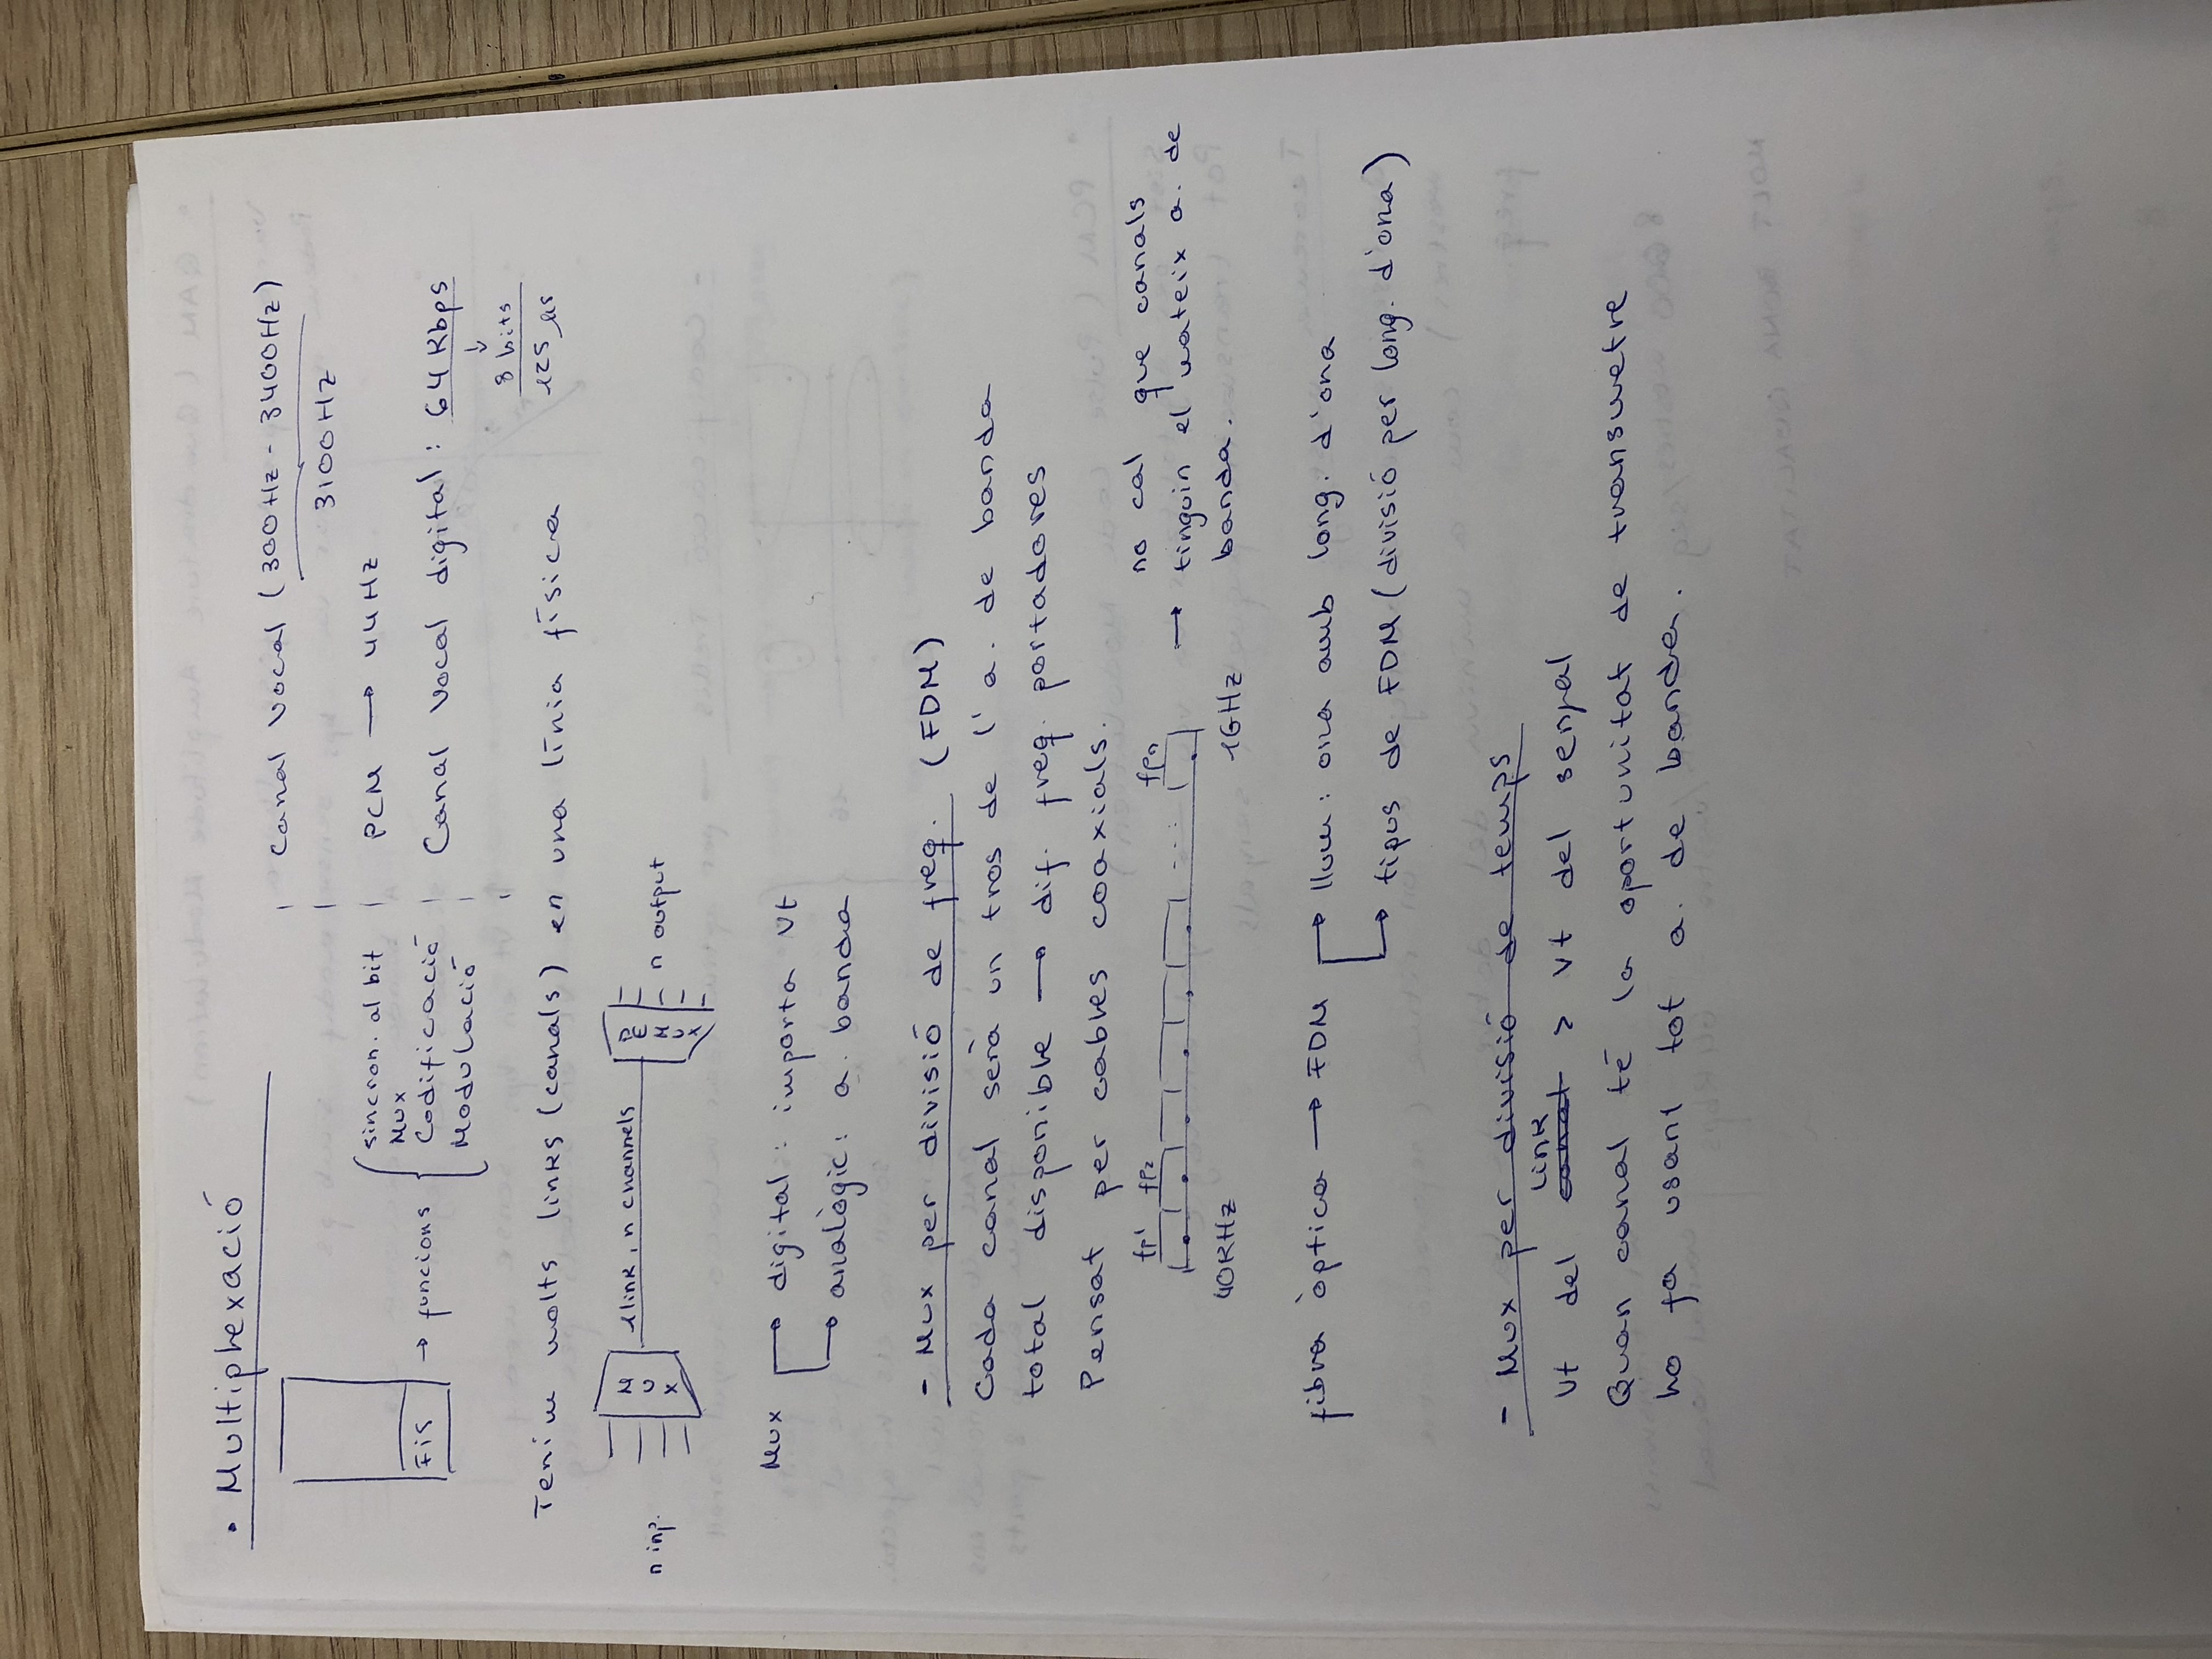 • Multiplexació
FiS → funcions
sincron. al bit
Mux
Codificació
Modulació
Canal Vocal (300Hz - 3400Hz)
3100Hz
PCM → 44Hz
Canal Vocal digital: 64 Kbps
↓
8 bits
125 µs
Tenim molts links (canals) en una línia física
n inp.
MUX
1 link, n channels
DEMUX
n output
Mux → digital: importa Vt
→ analògic: a. banda
- Mux per divisió de freq. (FDM)
Cada canal serà un tros de l'a. de banda
total disponible → dif. freq. portadores
Pensat per cables coaxials.
fp1 fp2 ... fpn
40KHz 1GHz
→ no cal que canals
tinguin el mateix a. de
banda.
fibra òptica → FDM → llum: ona amb long. d'ona
→ tipus de FDM (divisió per long. d'ona)
- Mux per divisió de temps
link
Vt del canal > Vt del senyal
Quan canal té la oportunitat de transmetre
ho fa usant tot a. de banda.